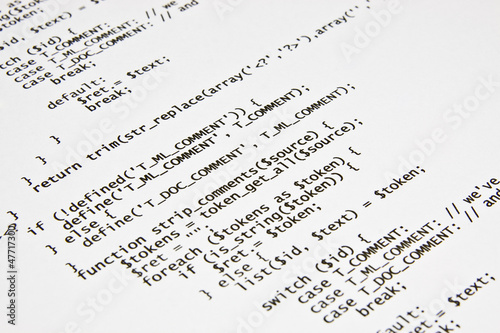 $token;
($id, $text) =
switch ($id) { // we've
case T_COMMENT: // and
case T_ML_COMMENT:
case T_DOC_COMMENT:
break;
default:
$ret .= $text;
break;
}
}
}
return trim(str_replace(array('<?','?>'),array('',
}
if (!defined('T_ML_COMMENT')) {
define('T_ML_COMMENT', T_COMMENT);
} else {
define('T_DOC_COMMENT', T_ML_COMMENT);
}
function strip_comments($source) {
$tokens = token_get_all($source);
$ret = '';
foreach ($tokens as $token) {
if (is_string($token)) {
$ret .= $token;
} else {
list($id, $text) = $token;
switch ($id) {
case T_COMMENT: // we've
case T_ML_COMMENT: // and
case T_DOC_COMMENT:
break;
default:
$ret .= $text;
break;
47717300